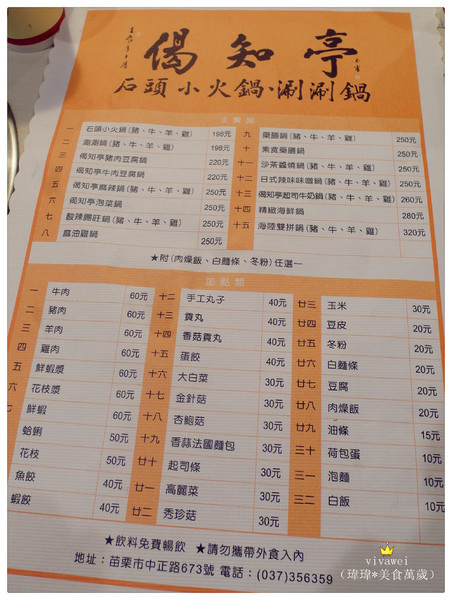 偈知亭
石頭小火鍋、涮涮鍋
主餐類
一 石頭小火鍋(豬、牛、羊、雞) 198元 九 藥膳鍋(豬、牛、羊、雞) 250元
二 涮涮鍋(豬、牛、羊、雞) 198元 十 素食藥膳鍋 250元
三 偈知亭豬肉豆腐鍋 220元 十一 沙茶醬燒鍋(豬、牛、羊、雞) 250元
四 偈知亭牛肉豆腐鍋 220元 十二 日式辣味味噌鍋(豬、牛、羊、雞) 250元
五 偈知亭麻辣鍋(豬、牛、羊、雞) 250元 十三 偈知亭起司牛奶鍋(豬、牛、羊、雞) 260元
六 偈知亭泡菜鍋 250元 十四 精緻海鮮鍋 280元
七 酸辣錫旺鍋(豬、牛、羊、雞) 250元 十五 海陸雙拼鍋(豬、牛、羊、雞) 320元
八 麻油雞鍋 250元
★附(肉燥飯、白麵條、冬粉)任選一
加點類
一 牛肉 60元 十二 手工丸子 40元 廿三 玉米 30元
二 豬肉 60元 十三 貢丸 40元 廿四 豆皮 20元
三 羊肉 60元 十四 香菇貢丸 40元 廿五 冬粉 20元
四 雞肉 60元 十五 蛋餃 40元 廿六 白麵條 20元
五 鮮蝦漿 60元 十六 大白菜 30元 廿七 豆腐 20元
六 花枝漿 60元 十七 金針菇 30元 廿八 肉燥飯 20元
七 鮮蝦 60元 十八 杏鮑菇 30元 廿九 油條 15元
蛤蜊 50元 十九 香蒜法國麵包 30元 三十 荷包蛋 10元
花枝 50元 二十 起司條 30元 三一 泡麵 10元
魚餃 40元 廿一 高麗菜 30元 三二 白飯 10元
蝦餃 40元 廿二 秀珍菇 30元
★飲料免費暢飲 ★請勿攜帶外食入內
地址：苗栗市中正路673號 電話：(037)356359
vivawei
(瑋瑋*美食萬歲)